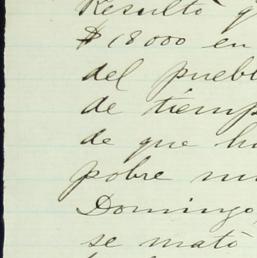 Resultó q
$18000 en
del puebl
de tiemp
de que ha
pobre mu
Domingo,
se mató